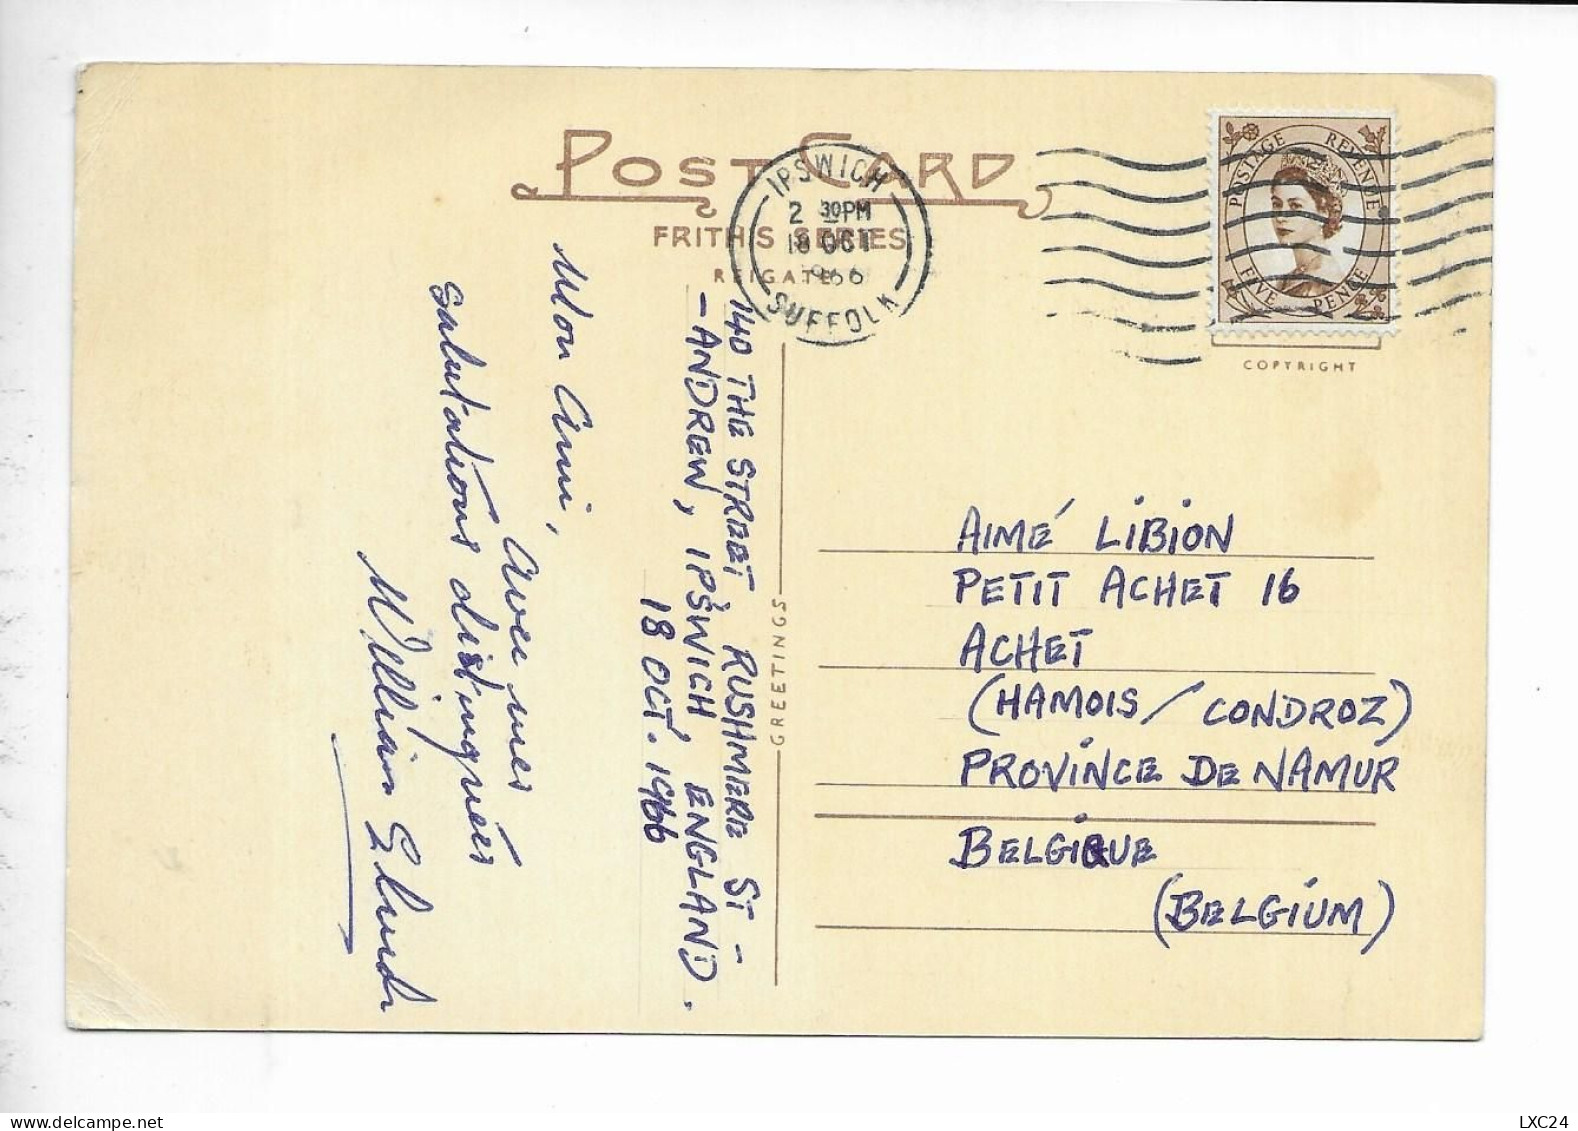 POST CARD
FRITH'S SERIES
REIGATE
IPSWICH
2 30PM
18 OCT
1966
SUFFOLK
POSTAGE REVENUE
FIVE PENCE
COPYRIGHT
140 THE STREET RUSHMERE ST -
- ANDREW, IPSWICH, ENGLAND.
18 OCT. 1966
Mon Ami,
Avec mes
salutations distinguées
William
GREETINGS
AIMÉ LIBION
PETIT ACHET 16
ACHET
(HAMOIS / CONDROZ)
PROVINCE DE NAMUR
BELGIQUE
(BELGIUM)
LXC24